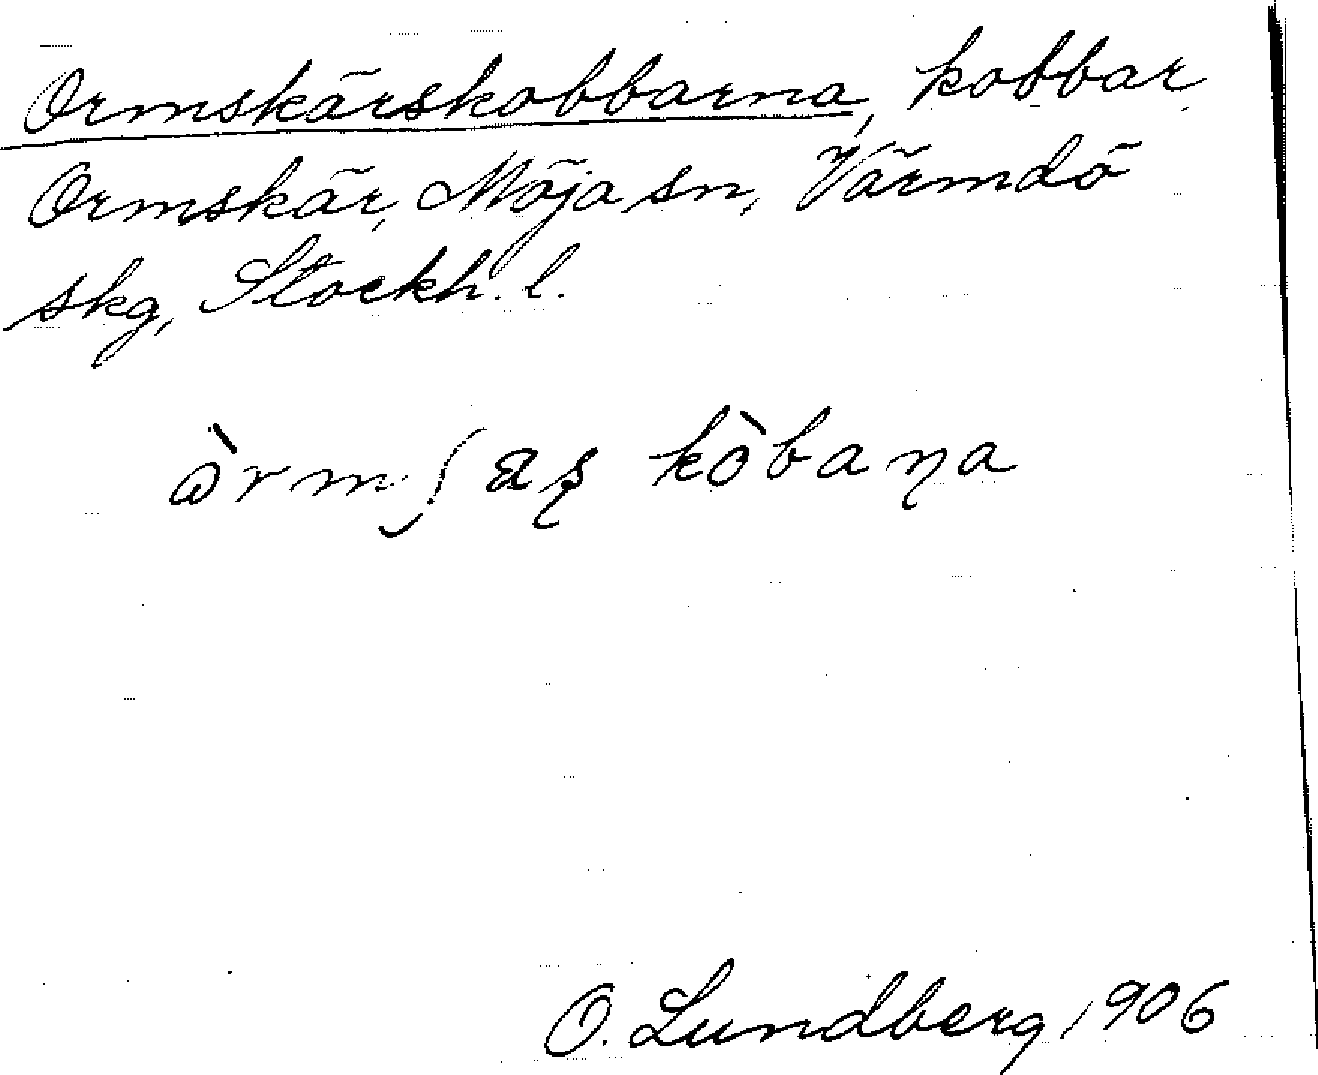 Ormskärskobbarna, kobbar,
Ormskär, Möja sn, Värmdö
skg, Stockh. l.
òrmʃaʂ kòbaɳa
O. Lundberg 1906